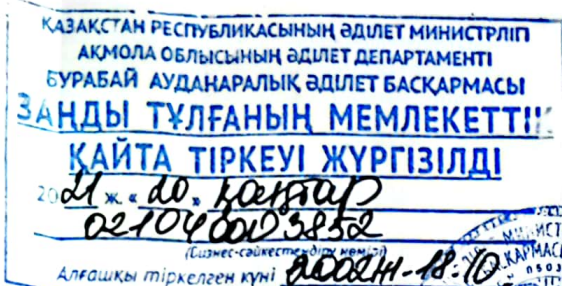 ҚАЗАҚСТАН РЕСПУБЛИКАСЫНЫҢ ӘДІЛЕТ МИНИСТРЛІГІ
АҚМОЛА ОБЛЫСЫНЫҢ ӘДІЛЕТ ДЕПАРТАМЕНТІ
БУРАБАЙ АУДАНАРАЛЫҚ ӘДІЛЕТ БАСҚАРМАСЫ
ЗАҢДЫ ТҰЛҒАНЫҢ МЕМЛЕКЕТТІК
ҚАЙТА ТІРКЕУІ ЖҮРГІЗІЛДІ
2021 ж. «20» қаңтар
021040003852
(Бизнес-сәйкестендіру нөмірі)
Алғашқы тіркелген күні 2002ж-18.10.